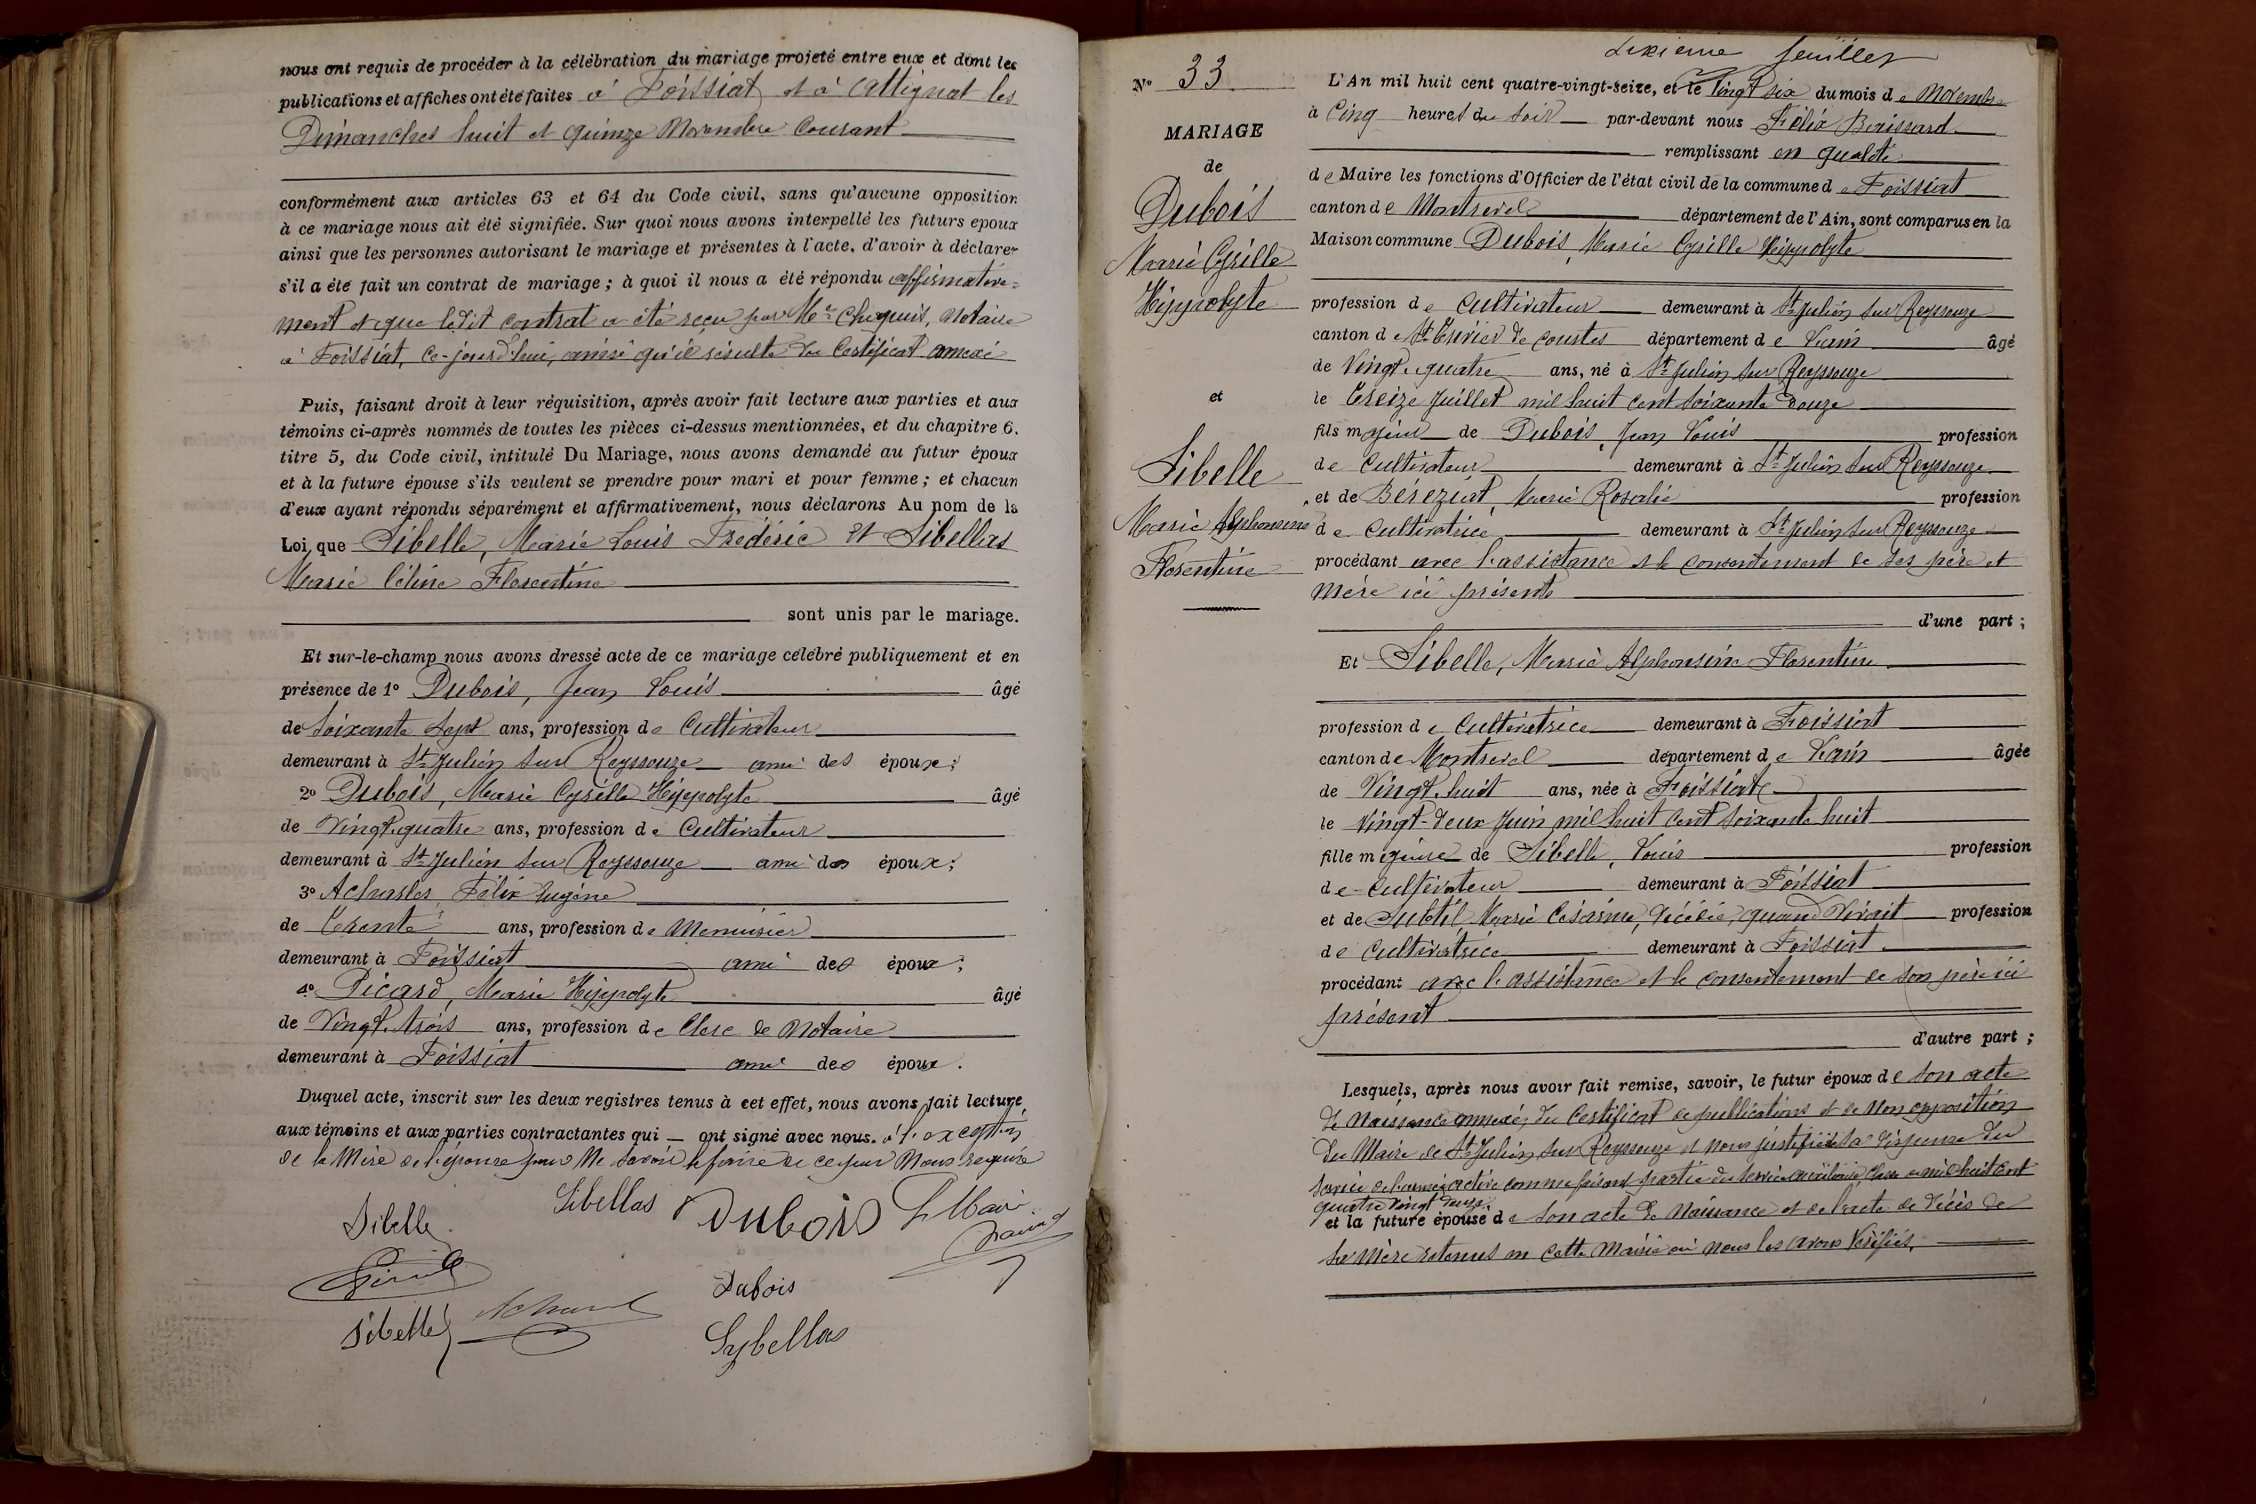 nous ont requis de procéder à la célébration du mariage projeté entre eux et dont les
publications et affiches ont été faites à Foissiat et à Attignat les
Dimanches huit et quinze Novembre Courant
conformément aux articles 63 et 64 du Code civil, sans qu'aucune opposition
à ce mariage nous ait été signifiée. Sur quoi nous avons interpellé les futurs epoux
ainsi que les personnes autorisant le mariage et présentes à l'acte, d'avoir à déclarer
s'il a été fait un contrat de mariage ; à quoi il nous a été répondu affirmative=
ment et que ledit contrat a été reçu par Me Chaquis, Notaire
à Foissiat, ce-jourd'hui, ainsi qu'il résulte du Certificat annexé
Puis, faisant droit à leur réquisition, après avoir fait lecture aux parties et aux
témoins ci-après nommés de toutes les pièces ci-dessus mentionnées, et du chapitre 6.
titre 5, du Code civil, intitulé Du Mariage, nous avons demandé au futur époux
et à la future épouse s'ils veulent se prendre pour mari et pour femme ; et chacun
d'eux ayant répondu séparément et affirmativement, nous déclarons Au nom de la
Loi, que Sibelle, Marie Louis Frédéric et Sibellas
Marie Céline Florentine
sont unis par le mariage.
Et sur-le-champ nous avons dressé acte de ce mariage célébré publiquement et en
présence de 1o Dubois, Jean Louis âgé
de soixante sept ans, profession de Cultivateur
demeurant à St Julien sur Reyssouze ami des époux ;
2o Dubois, Marie Cyrille Hippolyte âgé
de vingt-quatre ans, profession de Cultivateur
demeurant à St Julien sur Reyssouze ami des époux ;
3o Felix Eugène
de Trente ans, profession de Menuisier
demeurant à Foissiat ami des époux ;
4o Picard, Marie Hippolyte âgé
de Vingt-trois ans, profession de Clerc de Notaire
demeurant à Foissiat ami des époux.
Duquel acte, inscrit sur les deux registres tenus à cet effet, nous avons fait lecture
aux témoins et aux parties contractantes qui _ ont signé avec nous. à l'exception
de la Mère de l'épouse pour ne savoir le faire de ce par Nous requise
Sibelle Sibellas Dubois Le Maire
Sibelle Dubois
Sybellas
Dixième feuillet
No 33
MARIAGE
de
Dubois
Marie Cyrille
Hippolyte
et
Sibelle
Marie Alphonsine
Florentine
L'An mil huit cent quatre-vingt-seize, et le Vingt Six du mois de Novembre
à Cinq heures du soir par-devant nous Félix Boissard
remplissant en qualité
de Maire les fonctions d'Officier de l'état civil de la commune de Foissiat
canton de Montrevel département de l'Ain, sont comparus en la
Maison commune Dubois, Marie Cyrille Hippolyte
profession de Cultivateur demeurant à St Julien sur Reyssouze
canton de St Trivier de Courtes département de l'ain âgé
de Vingt-quatre ans, né à St Julien sur Reyssouze
le Treize Juillet mil huit cent soixante douze
fils majeur de Dubois, Jean Louis profession
de Cultivateur demeurant à St Julien sur Reyssouze
et de Béreziat, Marie Rosalie profession
de Cultivatrice demeurant à St Julien sur Reyssouze
procédant avec l'assistance et le consentement de ses père et
mère ici présents
d'une part ;
Et Sibelle, Marie Alphonsine Florentine
profession de Cultivatrice demeurant à Foissiat
canton de Montrevel département de l'ain âgée
de Vingt-huit ans, née à Foissiat
le Vingt-deux Juin mil huit Cent soixante huit
fille majeure de Sibelle, Louis profession
de Cultivateur demeurant à Foissiat
et de Subtil Marie Césarine, décédée, quand vivait profession
de Cultivatrice demeurant à Foissiat
procédant avec l'assistance et le consentement de son père ici
présent
d'autre part ;
Lesquels, après nous avoir fait remise, savoir, le futur époux de son acte
de Naissance annexé, du Certificat de publications et de Non opposition
du Maire de St Julien sur Reyssouze et nous justifié sa dispense du
service de l'armée active comme faisant partie du service auxiliaire Classe de mil huit Cent
quatre vingt douze
et la future épouse de son acte de Naissance et de l'acte de décès de
sa Mère retenus en cette Mairie où nous les avons Vérifiés.